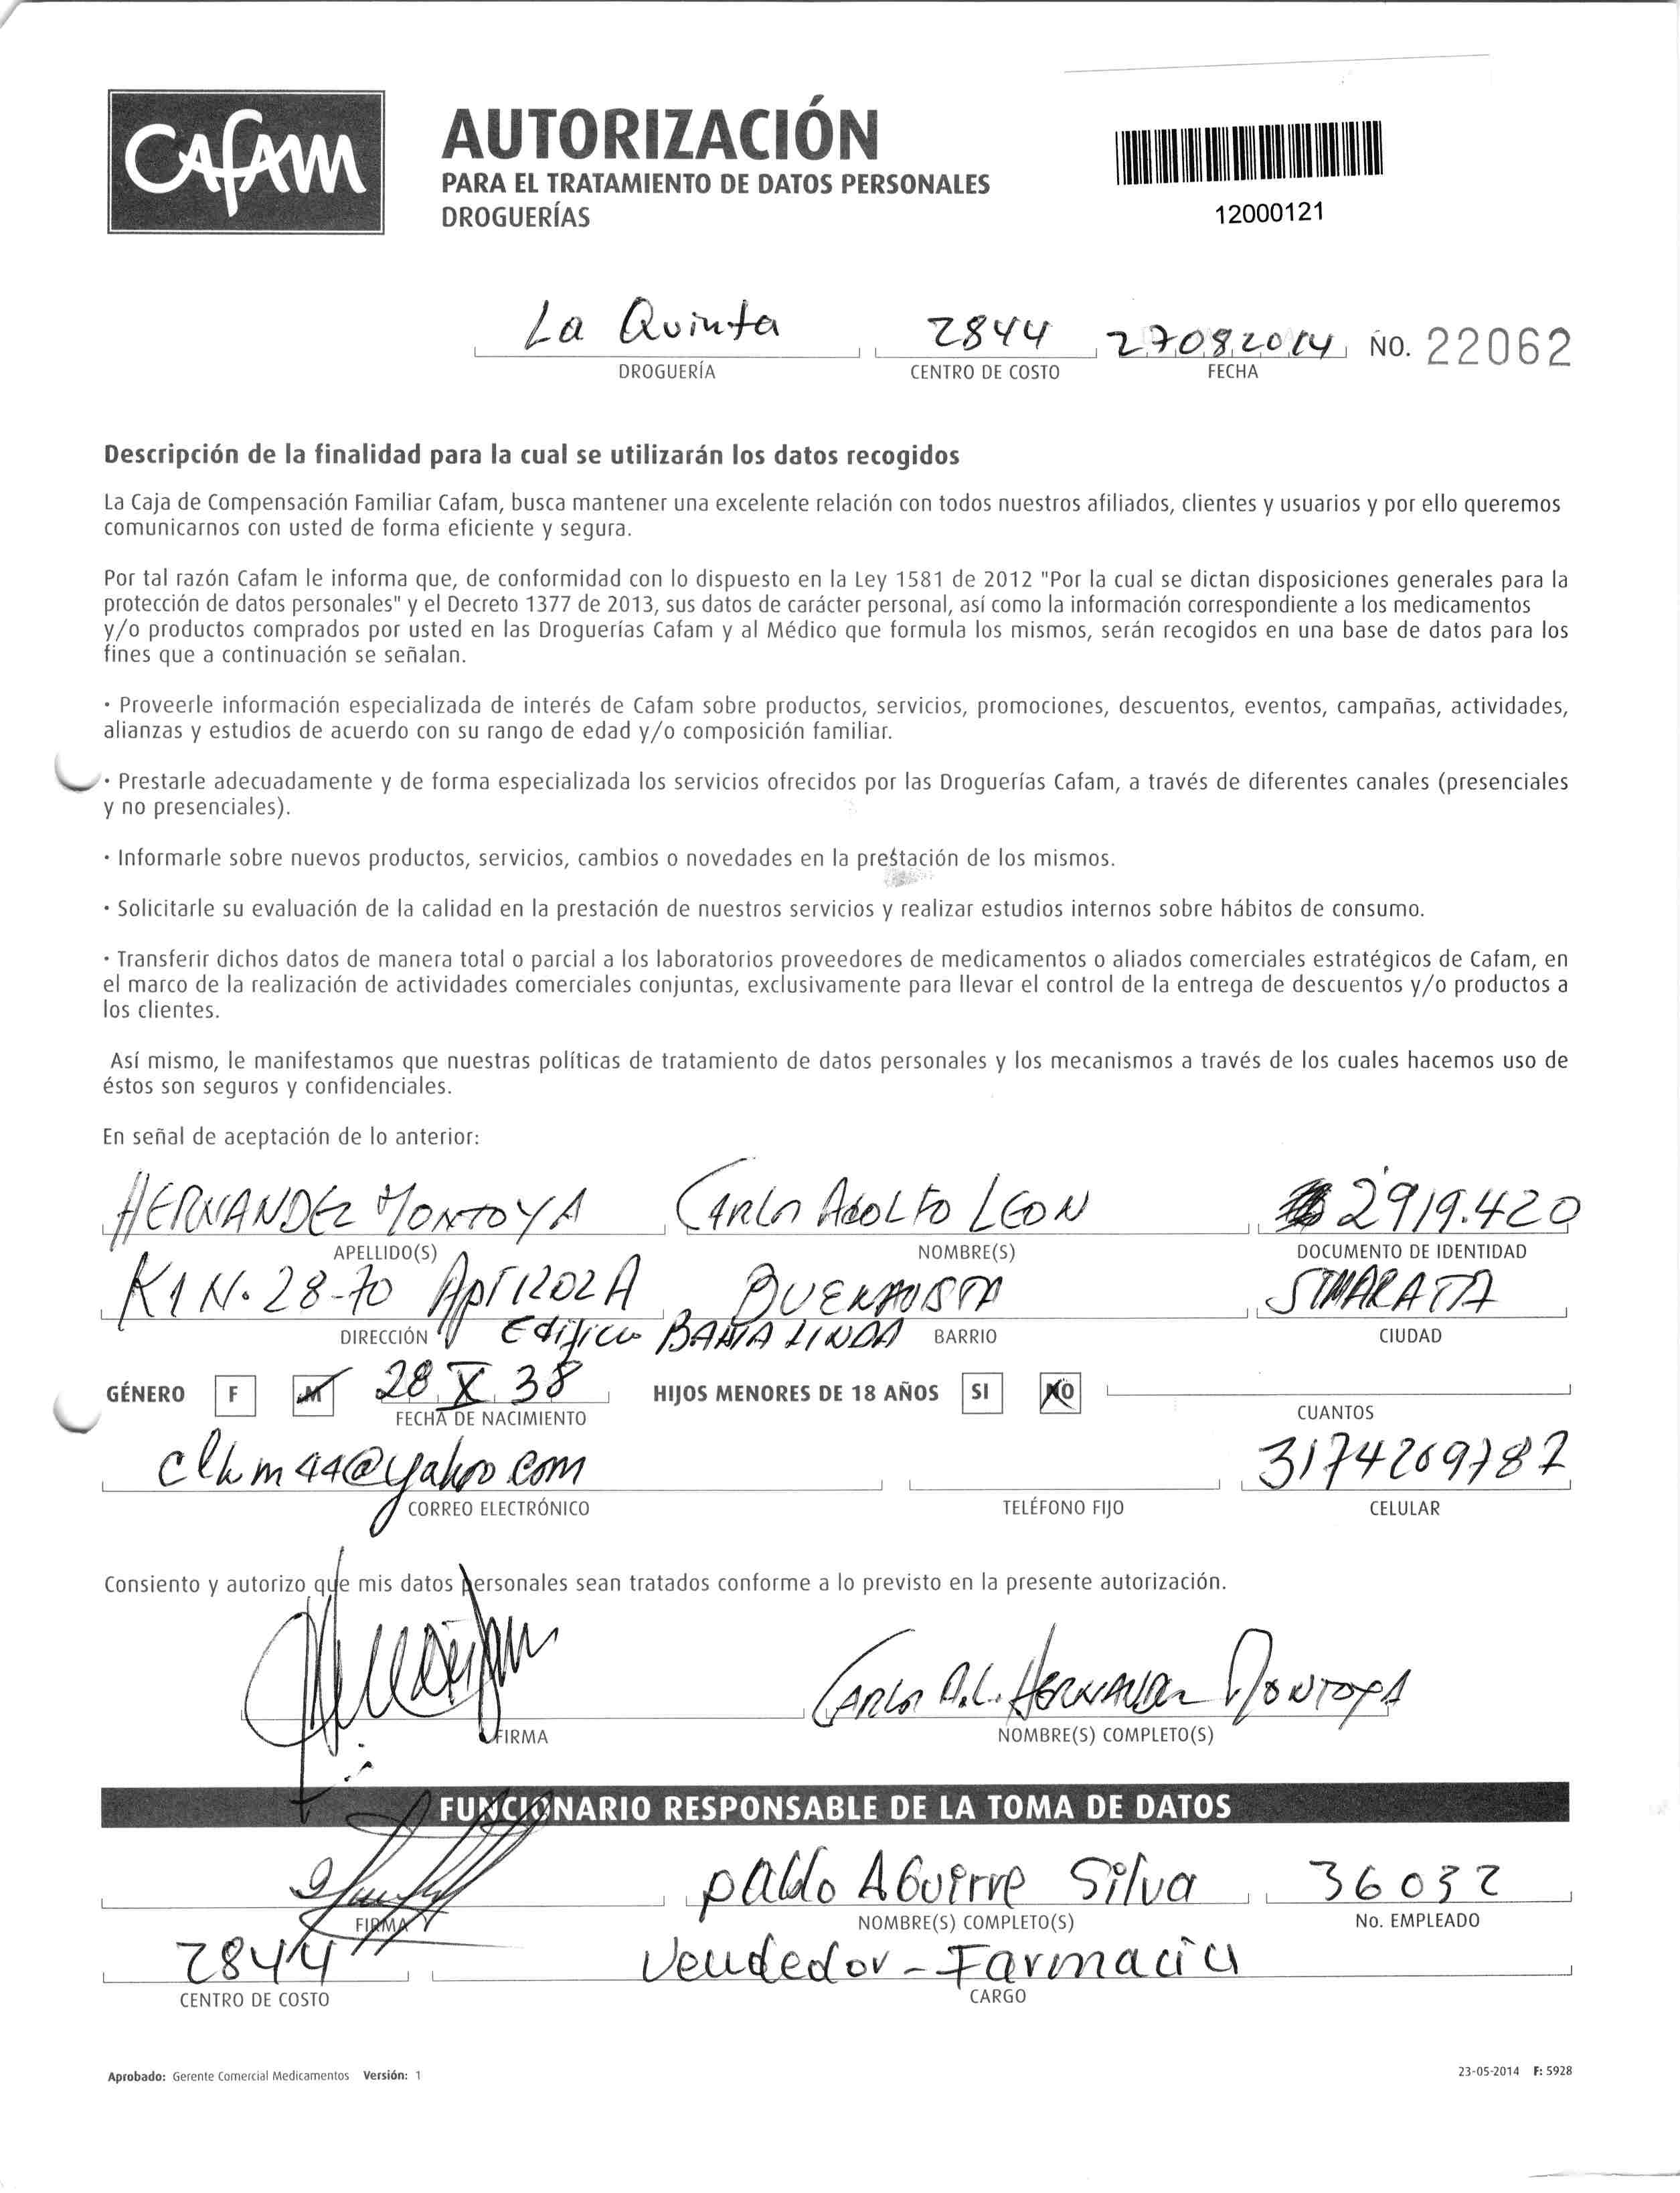 CAFAM
AUTORIZACIÓN
PARA EL TRATAMIENTO DE DATOS PERSONALES
DROGUERÍAS
12000121
La Quinta 2844 27082014 NO. 22062
DROGUERÍA CENTRO DE COSTO FECHA
Descripción de la finalidad para la cual se utilizarán los datos recogidos
La Caja de Compensación Familiar Cafam, busca mantener una excelente relación con todos nuestros afiliados, clientes y usuarios y por ello queremos
comunicarnos con usted de forma eficiente y segura.
Por tal razón Cafam le informa que, de conformidad con lo dispuesto en la Ley 1581 de 2012 "Por la cual se dictan disposiciones generales para la
protección de datos personales" y el Decreto 1377 de 2013, sus datos de carácter personal, así como la información correspondiente a los medicamentos
y/o productos comprados por usted en las Droguerías Cafam y al Médico que formula los mismos, serán recogidos en una base de datos para los
fines que a continuación se señalan.
· Proveerle información especializada de interés de Cafam sobre productos, servicios, promociones, descuentos, eventos, campañas, actividades,
alianzas y estudios de acuerdo con su rango de edad y/o composición familiar.
· Prestarle adecuadamente y de forma especializada los servicios ofrecidos por las Droguerías Cafam, a través de diferentes canales (presenciales
y no presenciales).
· Informarle sobre nuevos productos, servicios, cambios o novedades en la prestación de los mismos.
· Solicitarle su evaluación de la calidad en la prestación de nuestros servicios y realizar estudios internos sobre hábitos de consumo.
· Transferir dichos datos de manera total o parcial a los laboratorios proveedores de medicamentos o aliados comerciales estratégicos de Cafam, en
el marco de la realización de actividades comerciales conjuntas, exclusivamente para llevar el control de la entrega de descuentos y/o productos a
los clientes.
Así mismo, le manifestamos que nuestras políticas de tratamiento de datos personales y los mecanismos a través de los cuales hacemos uso de
éstos son seguros y confidenciales.
En señal de aceptación de lo anterior:
HERNANDEZ MONTOYA CARLOS ADOLFO LEON 2919.420
APELLIDO(S) NOMBRE(S) DOCUMENTO DE IDENTIDAD
K1 N. 28-70 Apt 1202A BUENAVISTA STMARATA
DIRECCIÓN Edificio BAHIA LINDA BARRIO CIUDAD
GÉNERO F M 28 X 38 HIJOS MENORES DE 18 AÑOS SI NO
FECHA DE NACIMIENTO CUANTOS
clhm44@yahoo.com 3174269782
CORREO ELECTRÓNICO TELÉFONO FIJO CELULAR
Consiento y autorizo que mis datos personales sean tratados conforme a lo previsto en la presente autorización.
CARLOS A.L. HERNANDEZ MONTOYA
FIRMA NOMBRE(S) COMPLETO(S)
FUNCIONARIO RESPONSABLE DE LA TOMA DE DATOS
pablo AGuirre Silva 36032
FIRMA NOMBRE(S) COMPLETO(S) No. EMPLEADO
2844 Vendedor - Farmacia
CENTRO DE COSTO CARGO
Aprobado: Gerente Comercial Medicamentos Versión: 1 23-05-2014 F: 5928